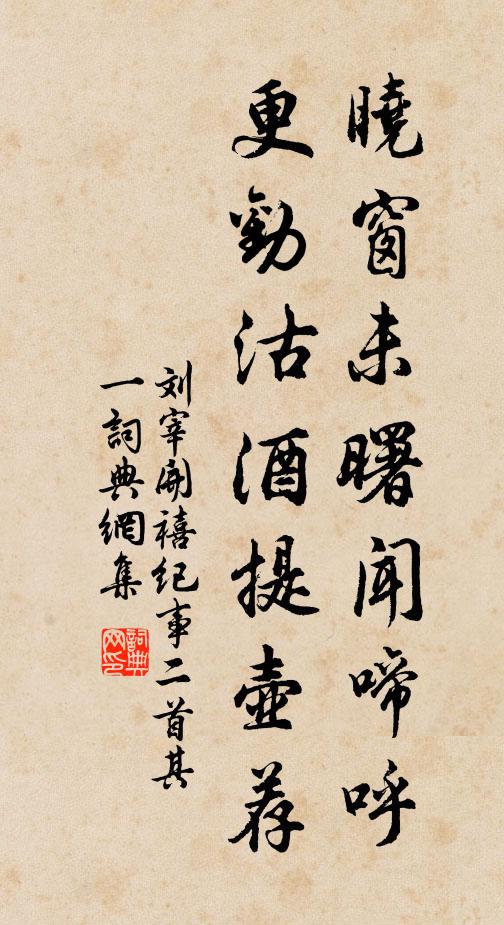 曉窗未曙聞啼呼
更勸沽酒提壺荐
刘宰開禧纪事二首其
一詞典網集
詞典网印